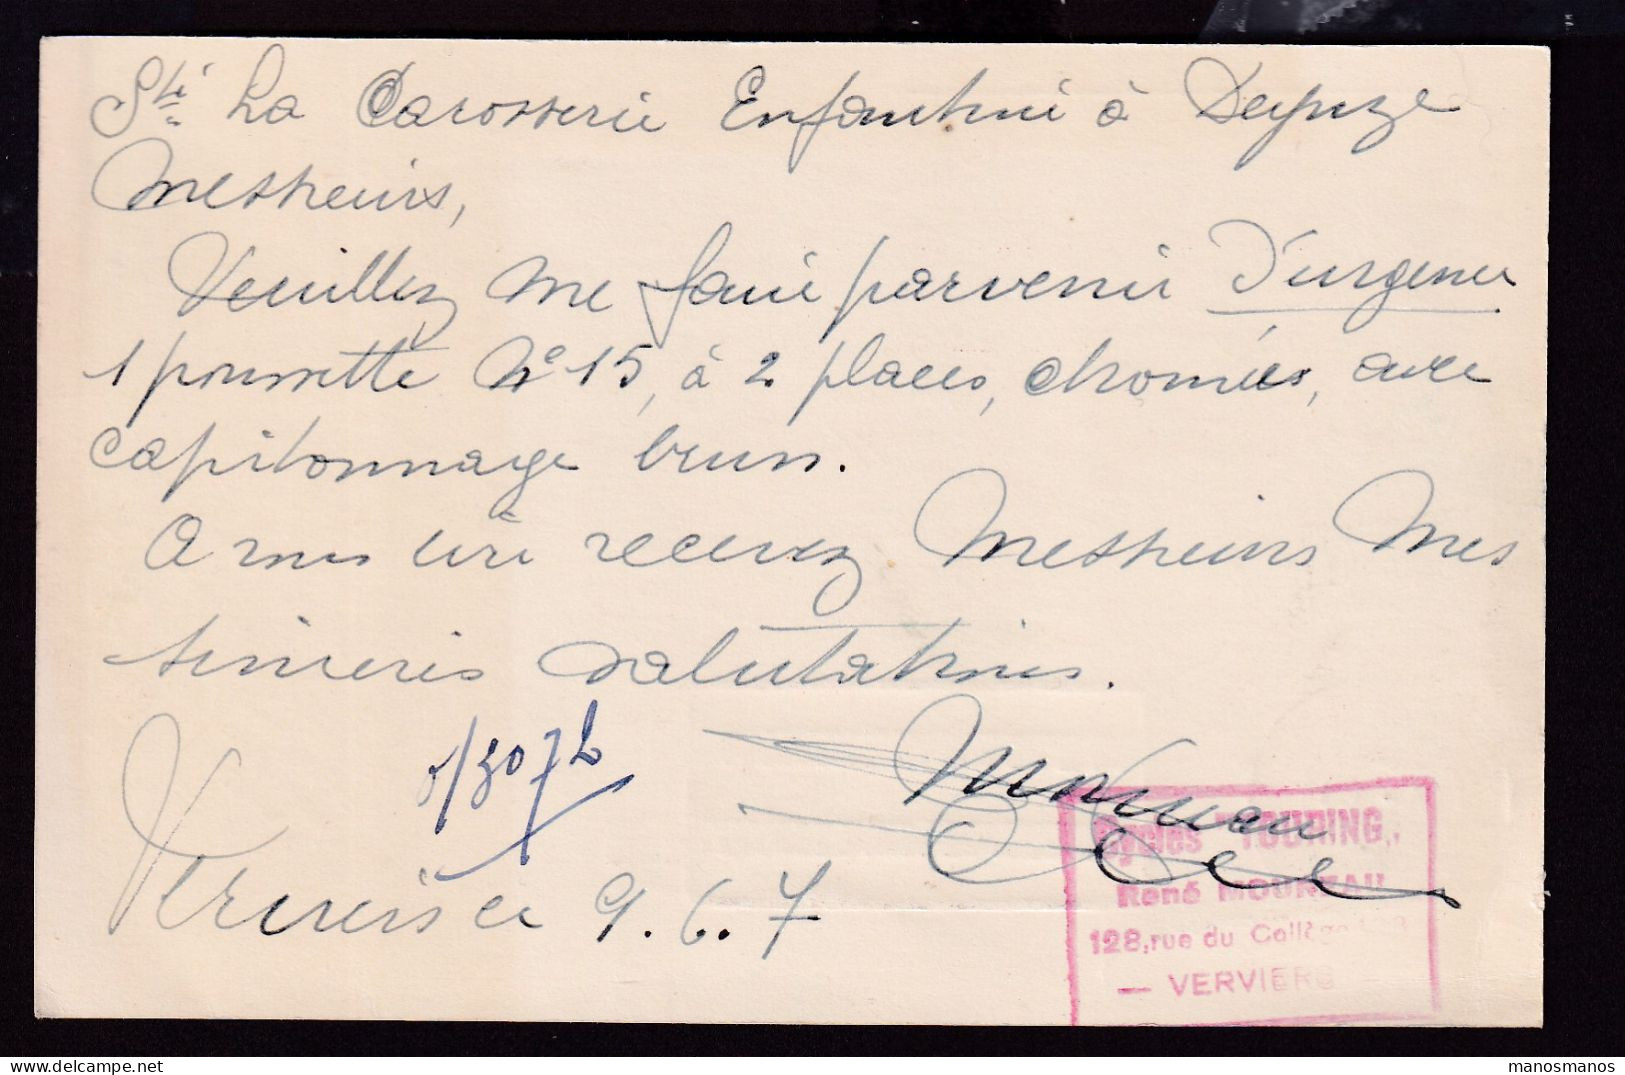 Sté La Carosserie Enfantine à Deynze
Messieurs,
Veuillez me faire parvenir d'urgence
1 poussette N° 15, à 2 places, chromées, avec
capitonnage brun.
A vous lire recevez Messieurs Mes
sincères salutations.
Verviers le 9.6.7
Cycles TOURING
René MOUREAU
128, rue du Collège
— VERVIERS
manosmanos